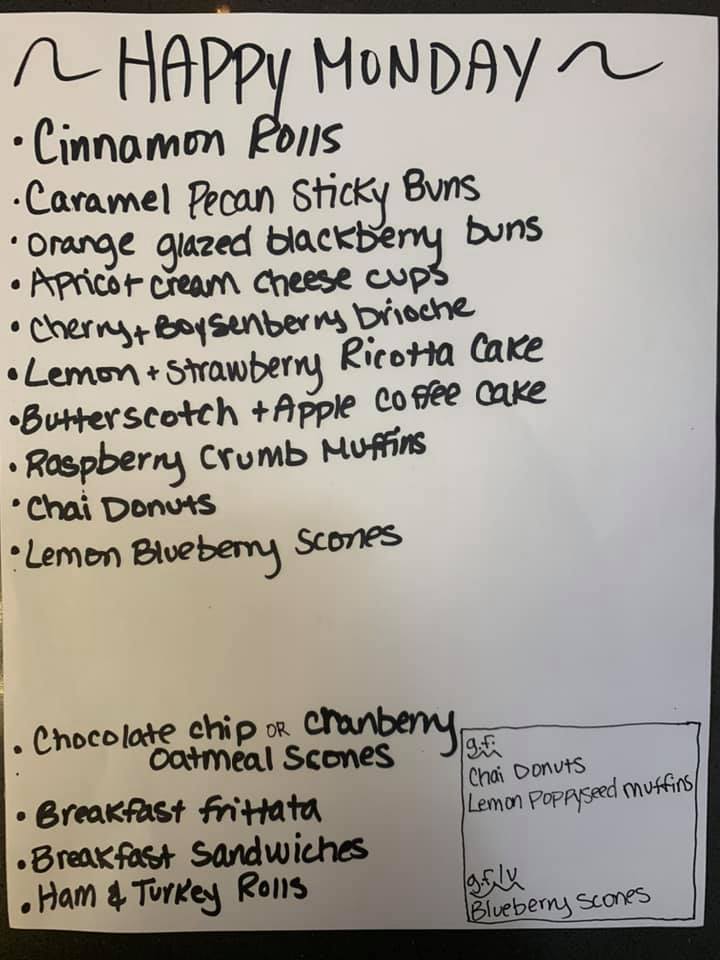 ~ HAPPY MONDAY ~
• Cinnamon Rolls
• Caramel Pecan Sticky Buns
• orange glazed blackberry buns
• Apricot cream cheese cups
• Cherry + Boysenberry brioche
• Lemon + Strawberry Ricotta Cake
• Butterscotch + Apple Coffee Cake
• Raspberry Crumb Muffins
• Chai Donuts
• Lemon Blueberry Scones
• Chocolate chip OR cranberry
Oatmeal Scones
• Breakfast frittata
• Breakfast Sandwiches
• Ham & Turkey Rolls
g.f:
Chai Donuts
Lemon Poppyseed muffins
g.f/v
Blueberry Scones